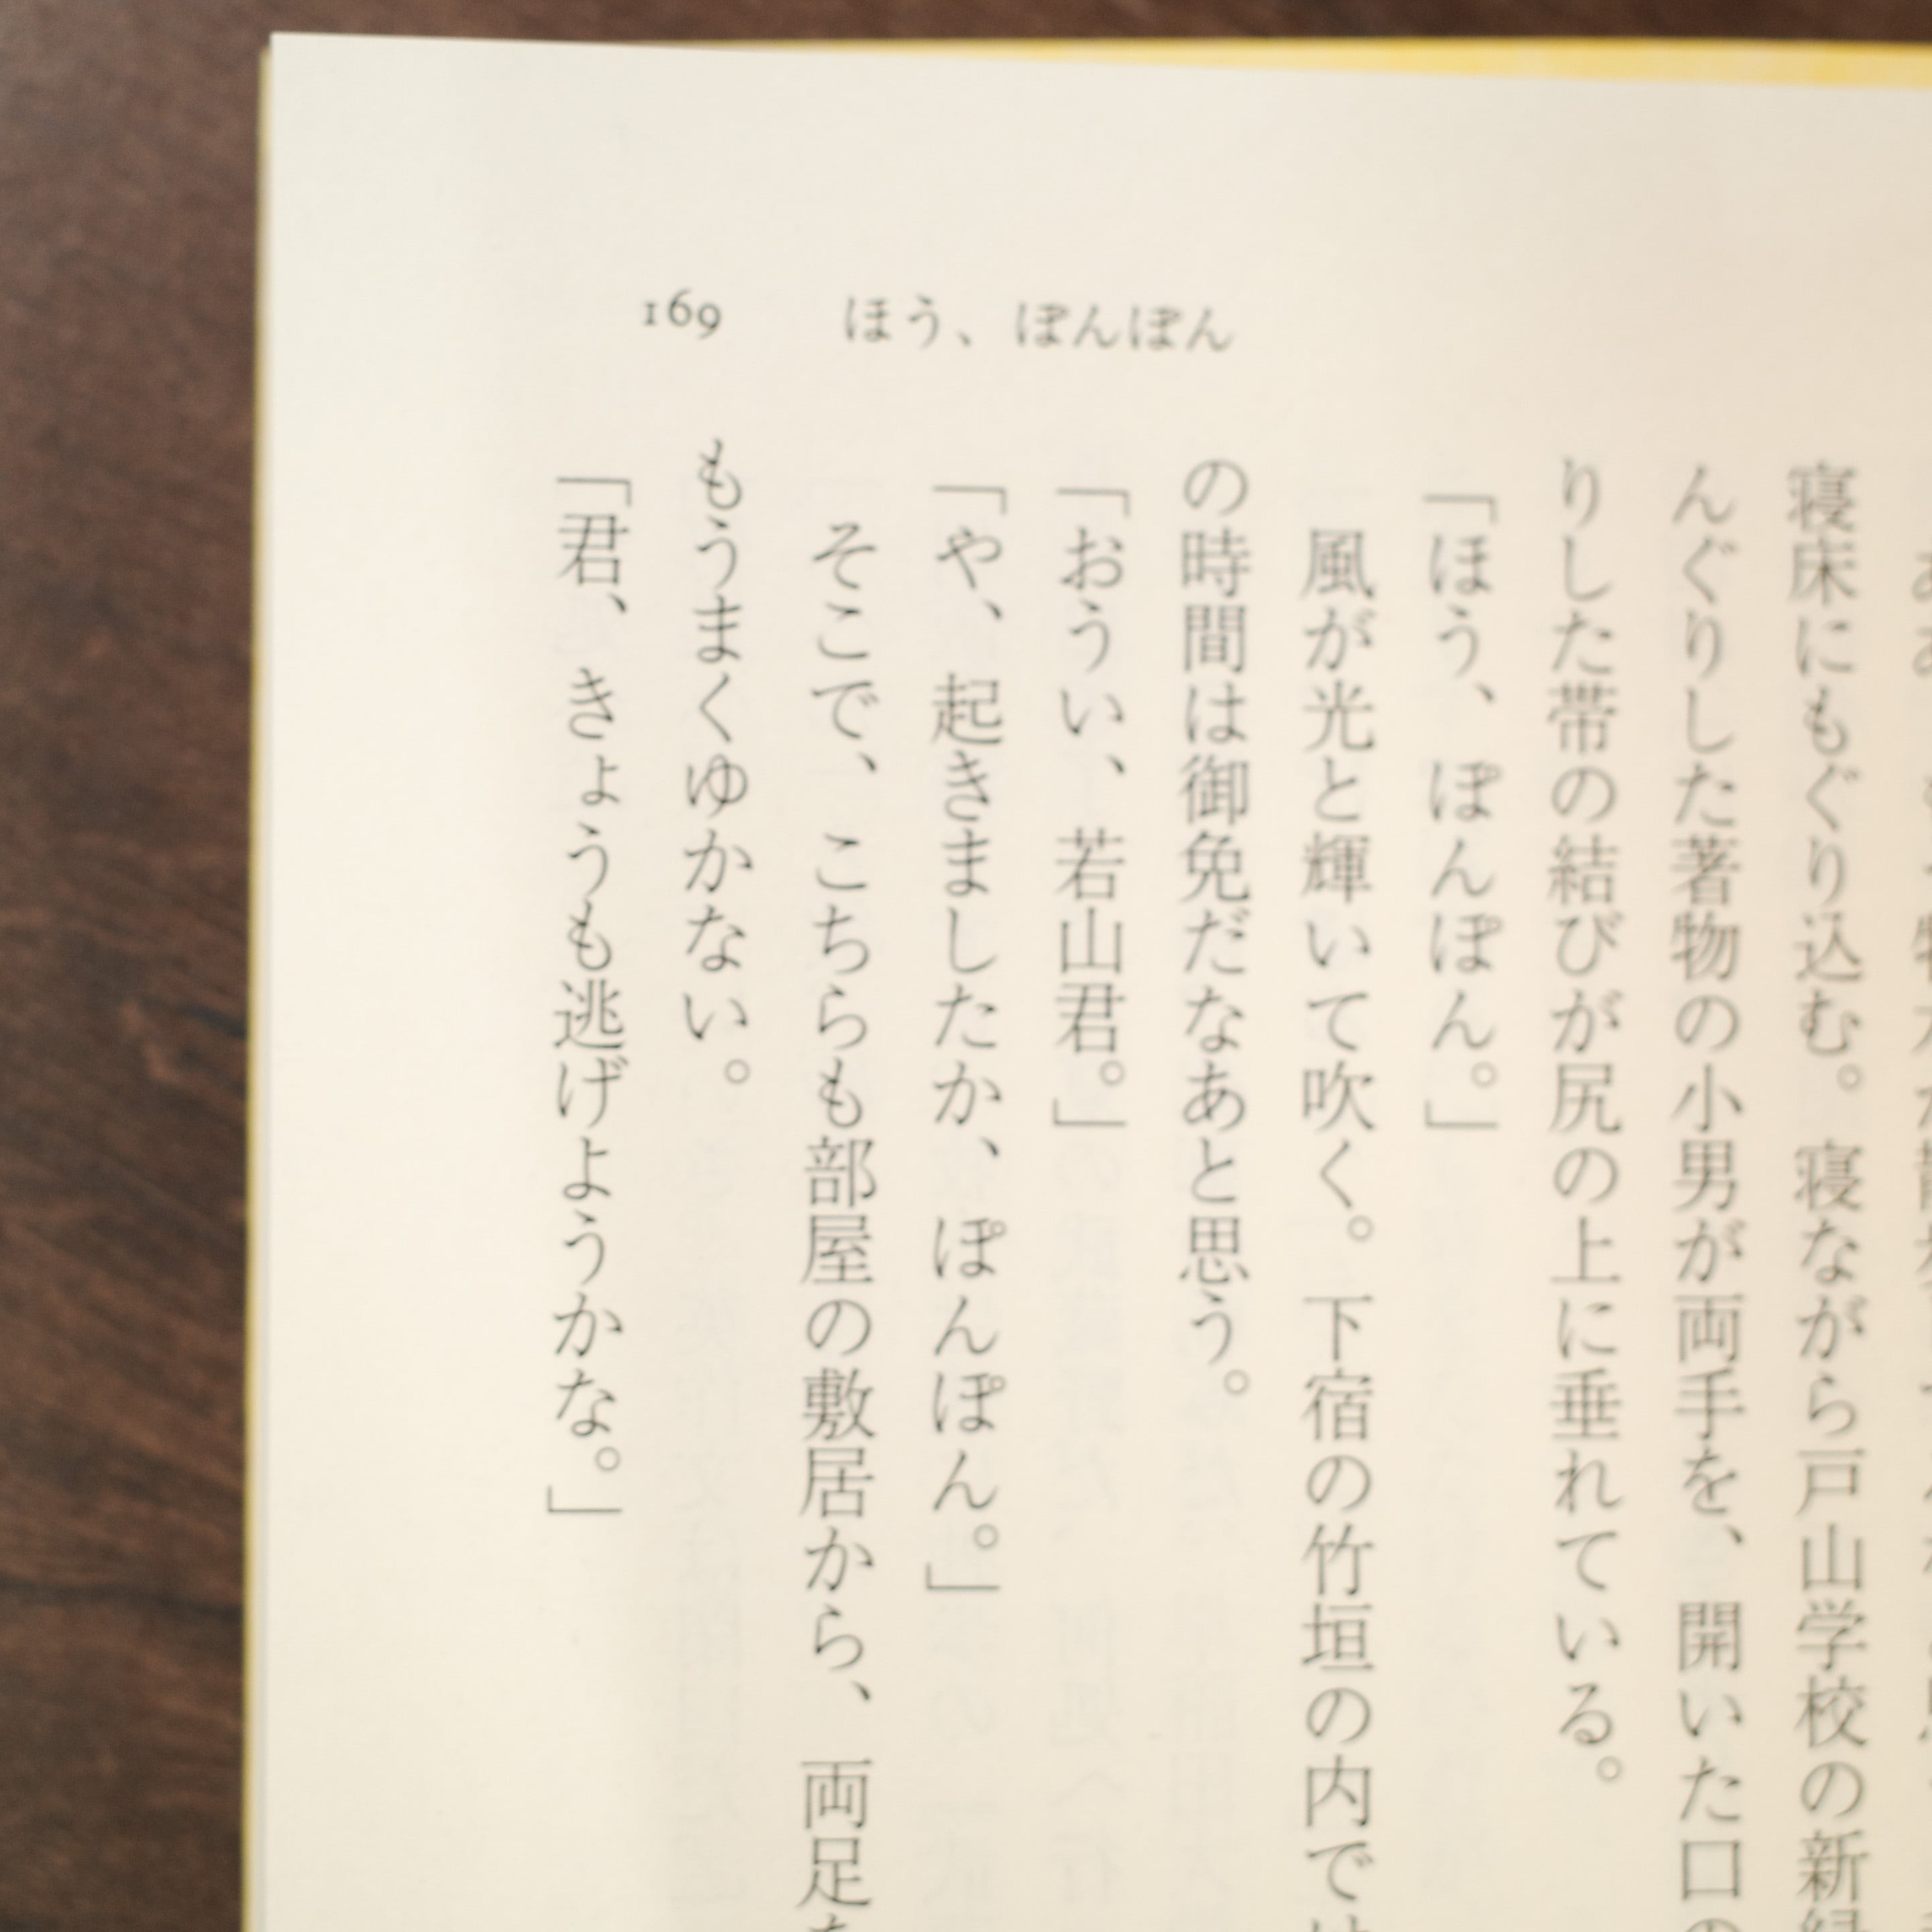 169 ほう、ぽんぽん
寝床にもぐり込む。寝ながら戸山学校の新緑
んぐりした著物の小男が両手を、開いた口の
りした帯の結びが尻の上に垂れている。
「ほう、ぽんぽん。」
風が光と輝いて吹く。下宿の竹垣の内では
の時間は御免だなあと思う。
「おうい、若山君。」
「や、起きましたか、ぽんぽん。」
そこで、こちらも部屋の敷居から、両足を
もうまくゆかない。
「君、きょうも逃げようかな。」